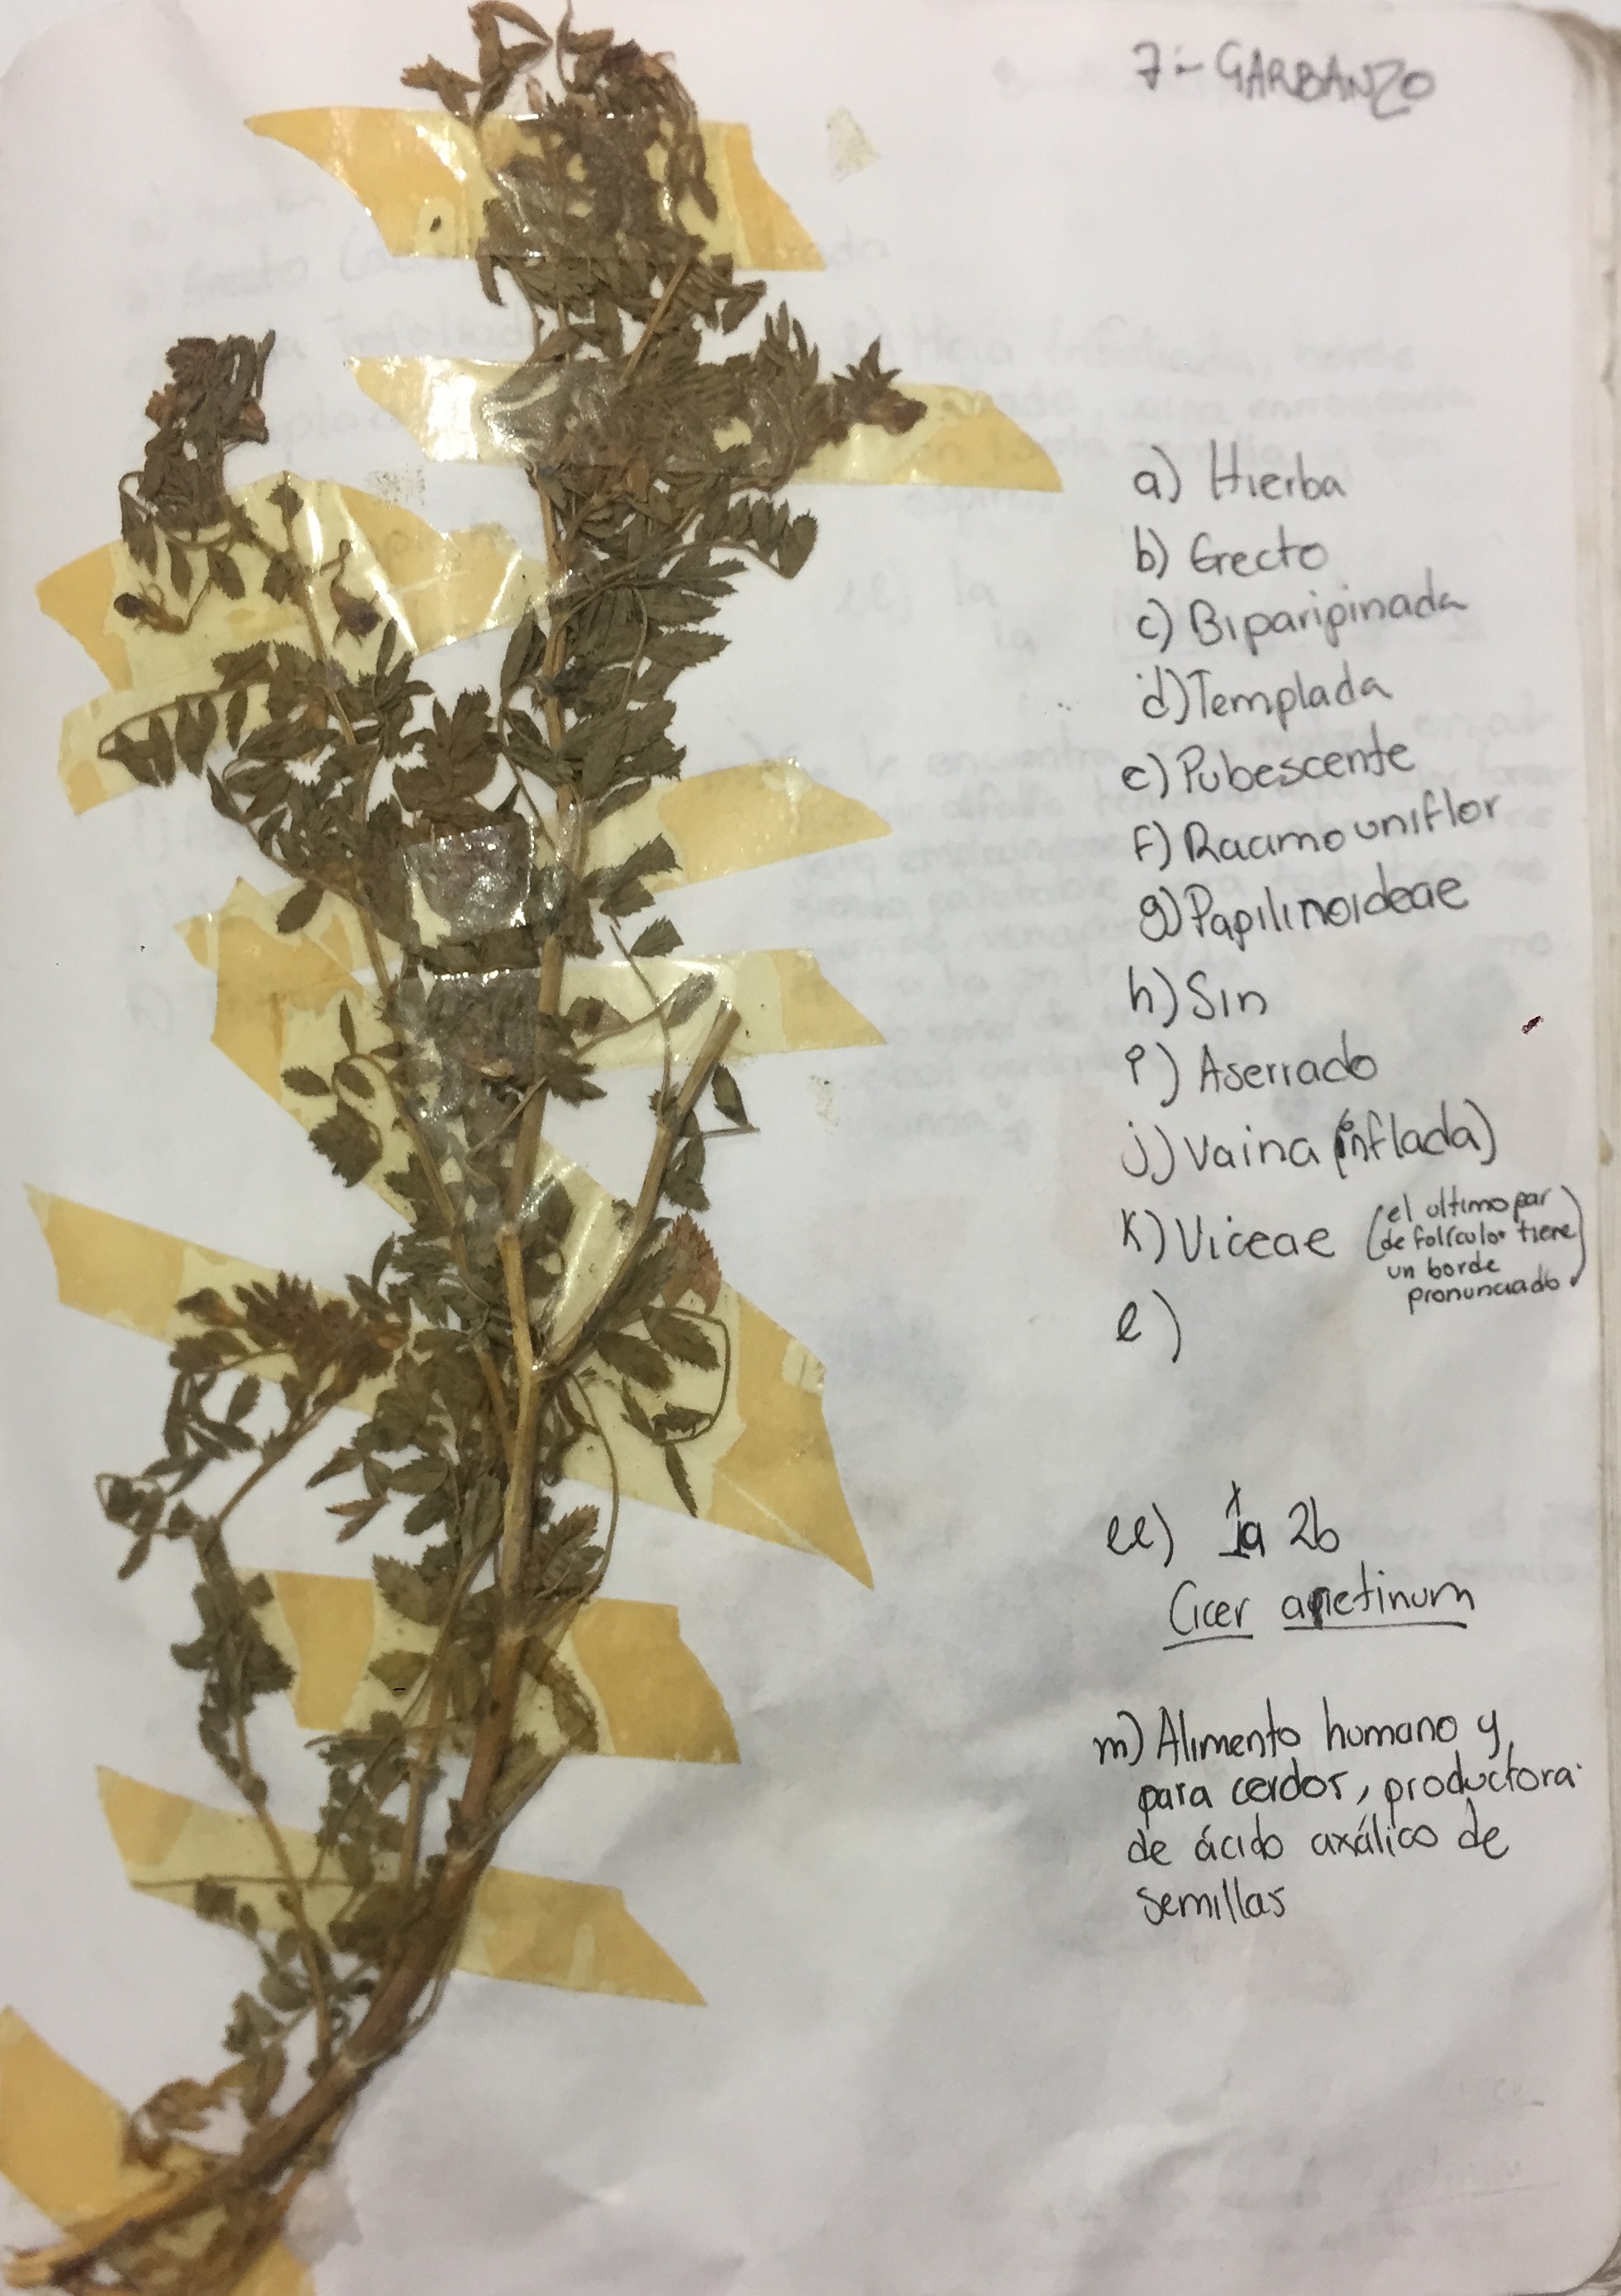 7.- GARBANZO
a) Hierba
b) Erecto
c) Biparipinada
d) Templada
e) Pubescente
f) Racimo uniflor
g) Papilinoideae
h) Sin
i) Aserrado
j) Vaina (inflada)
k) Viceae (el ultimo par
de folículos tiene
un borde
pronunciado)
l)
ll) 1a 2b
Cicer arietinum
m) Alimento humano y
para cerdos, productora
de ácido oxálico de
semillas